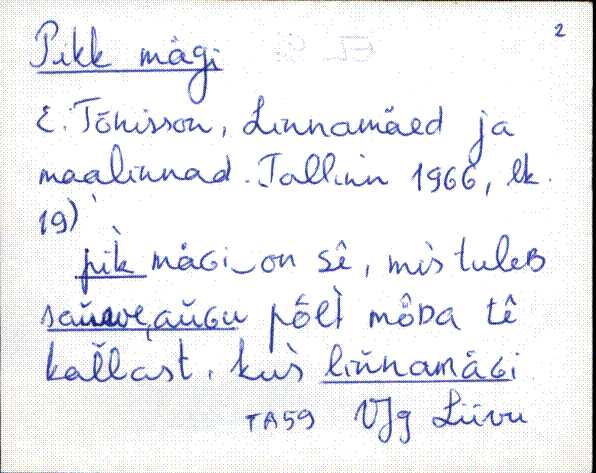 2
Pikk mägi
E. Tõnisson, Linnamäed ja
maalinnad. Tallinn 1966, lk.
19)
pik̀ mäɢi‿on sê, mìs tuleʙ
aǔɢu põĺl̀ mô̬ᴅa tê
kaľlast, kus̀ liňnamäɢi
TA59 VJg Liivu